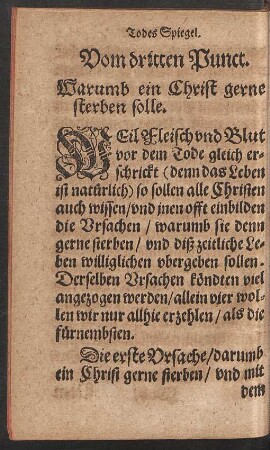 Todes Spiegel.
Vom dritten Punct.
Warumb ein Christ gerne
sterben solle.
WEil Fleisch vnd Blut
vor dem Tode gleich er-
schrickt (denn das Leben
ist natürlich) so sollen alle Christen
auch wissen/vnd jnen offt einbilden
die Vrsachen / warumb sie denn
gerne sterben / vnd diß zeitliche Le-
ben williglichen vbergeben sollen.
Derselben Vrsachen köndten viel
angezogen werden/allein vier wol-
len wir nur allhie erzehlen/als die
fürnembsten.
Die erste Vrsache/darumb
ein Christ gerne sterben / vnd mit
dem